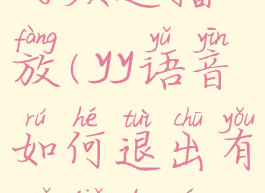 fàng yǔ yīn
放(yy语音
rú hé tuì chū yǒu
如何退出有